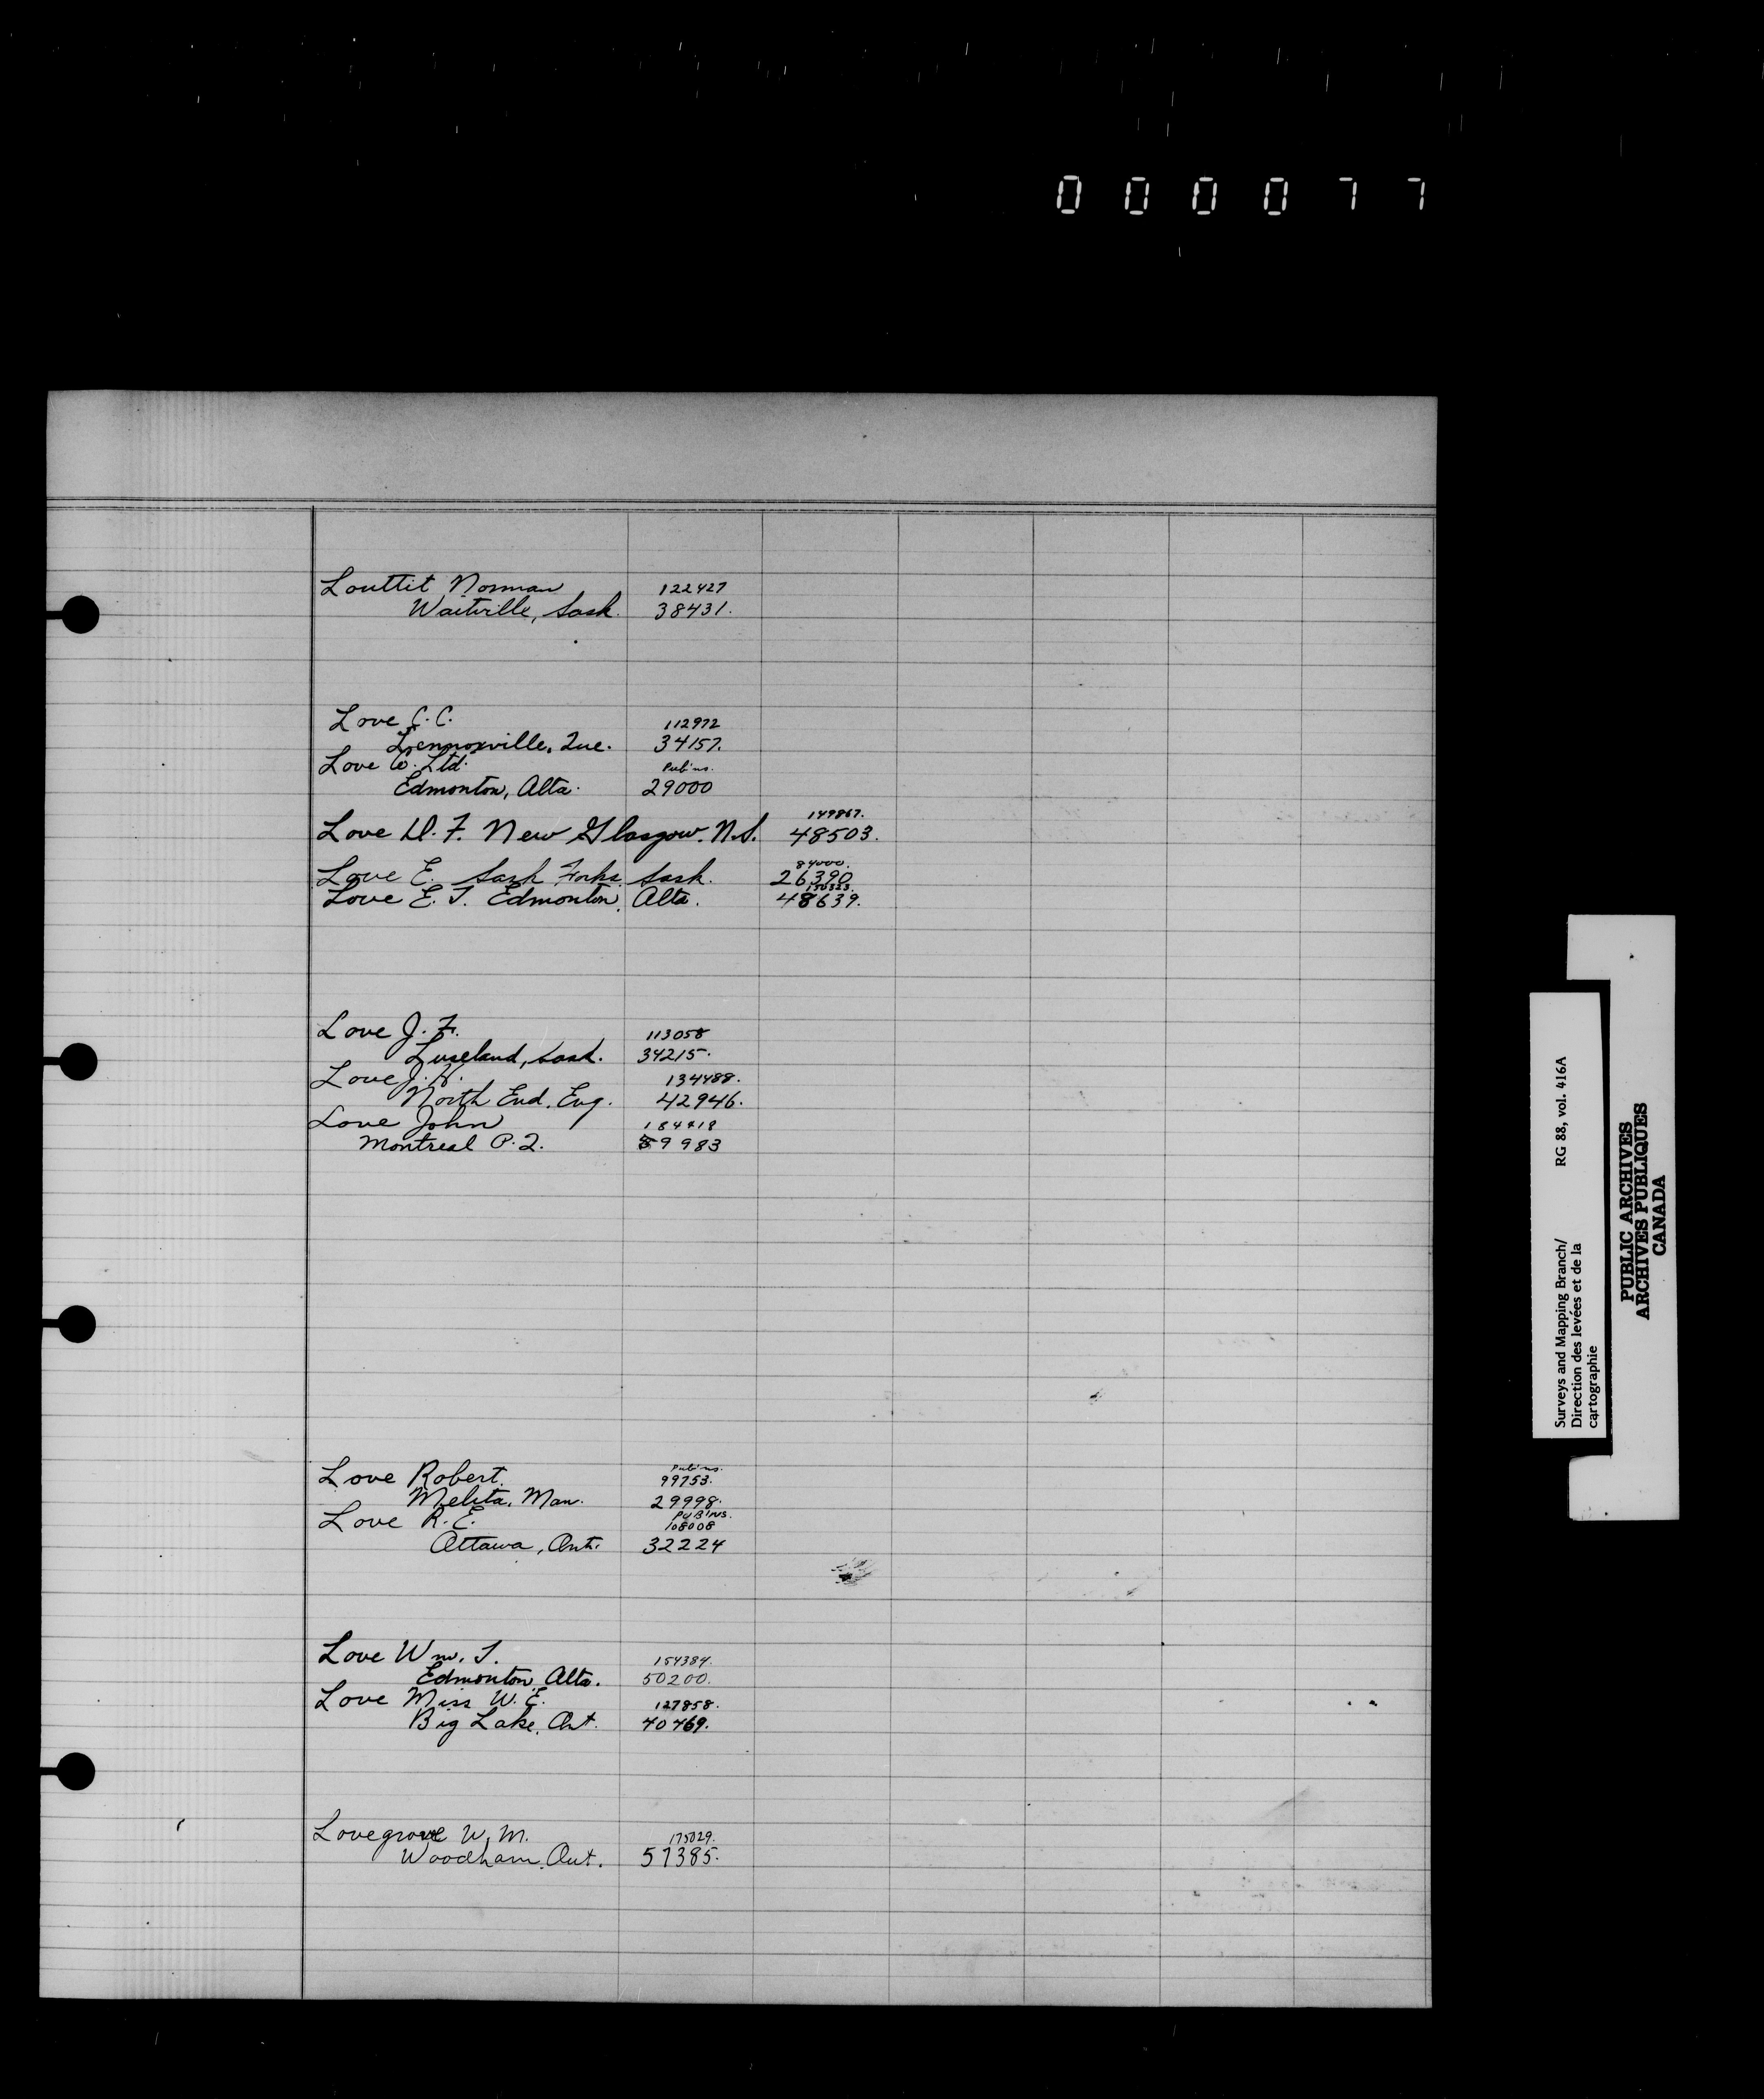 000077
Louttit Norman 122427
Waitville, Sask. 38431.
Love C. C. 112972
Lennoxville, Que. 34157.
Love Co. Ltd. Pub'ns.
Edmonton, Alta. 29000
149867.
Love D. F. New Glasgow. N.S. 48503.
84000.
Love E. Sask Forks Sask. 26390
150323.
Love E. T. Edmonton, Alta. 48639.
Love J. F. 113058
Luseland, Sask. 34215.
Love J. H. 134488.
North End. Eng. 42946.
Love John 184418
Montreal P.Q. 59983
Pub'ns.
Love Robert. 99753.
Melita, Man. 29998.
Pub'ns.
Love R. E. 108008
Ottawa, Ont. 32224
Love Wm. T. 154384.
Edmonton, Alta. 50200.
Love Miss W. E. 127858.
Big Lake, Ont. 40469.
Lovegrove W. M. 175029.
Woodham, Ont. 57385.
Surveys and Mapping Branch/ RG 88, vol. 416A
Direction des levées et de la
cartographie
PUBLIC ARCHIVES
ARCHIVES PUBLIQUES
CANADA